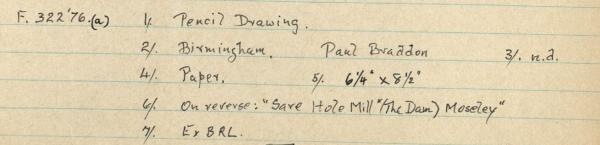 F. 322'76.(a) 1/. Pencil Drawing.
2/. Birmingham. Paul Braddon 3/. n.d.
4/. Paper. 5/. 6¼" x 8½"
6/. On reverse: "Sare Hole Mill "(The Dam) Moseley"
7/. Ex BRL.